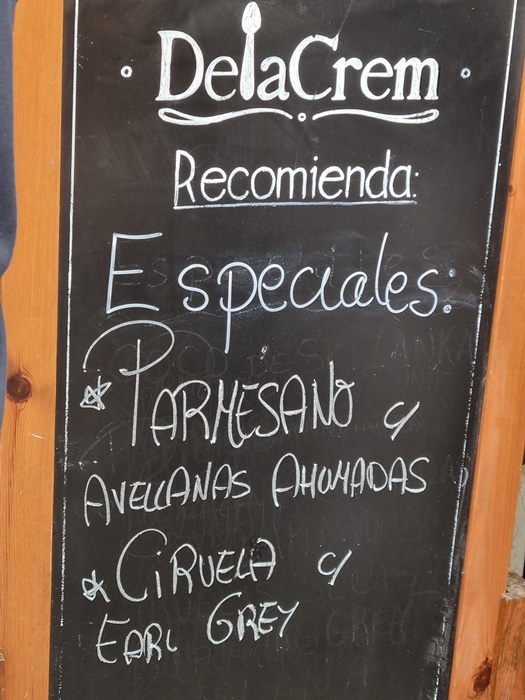 DelaCrem
Recomienda:
Especiales:
PARMESANO c/
AVELLANAS AHUMADAS
CIRUELA c/
EARL GREY